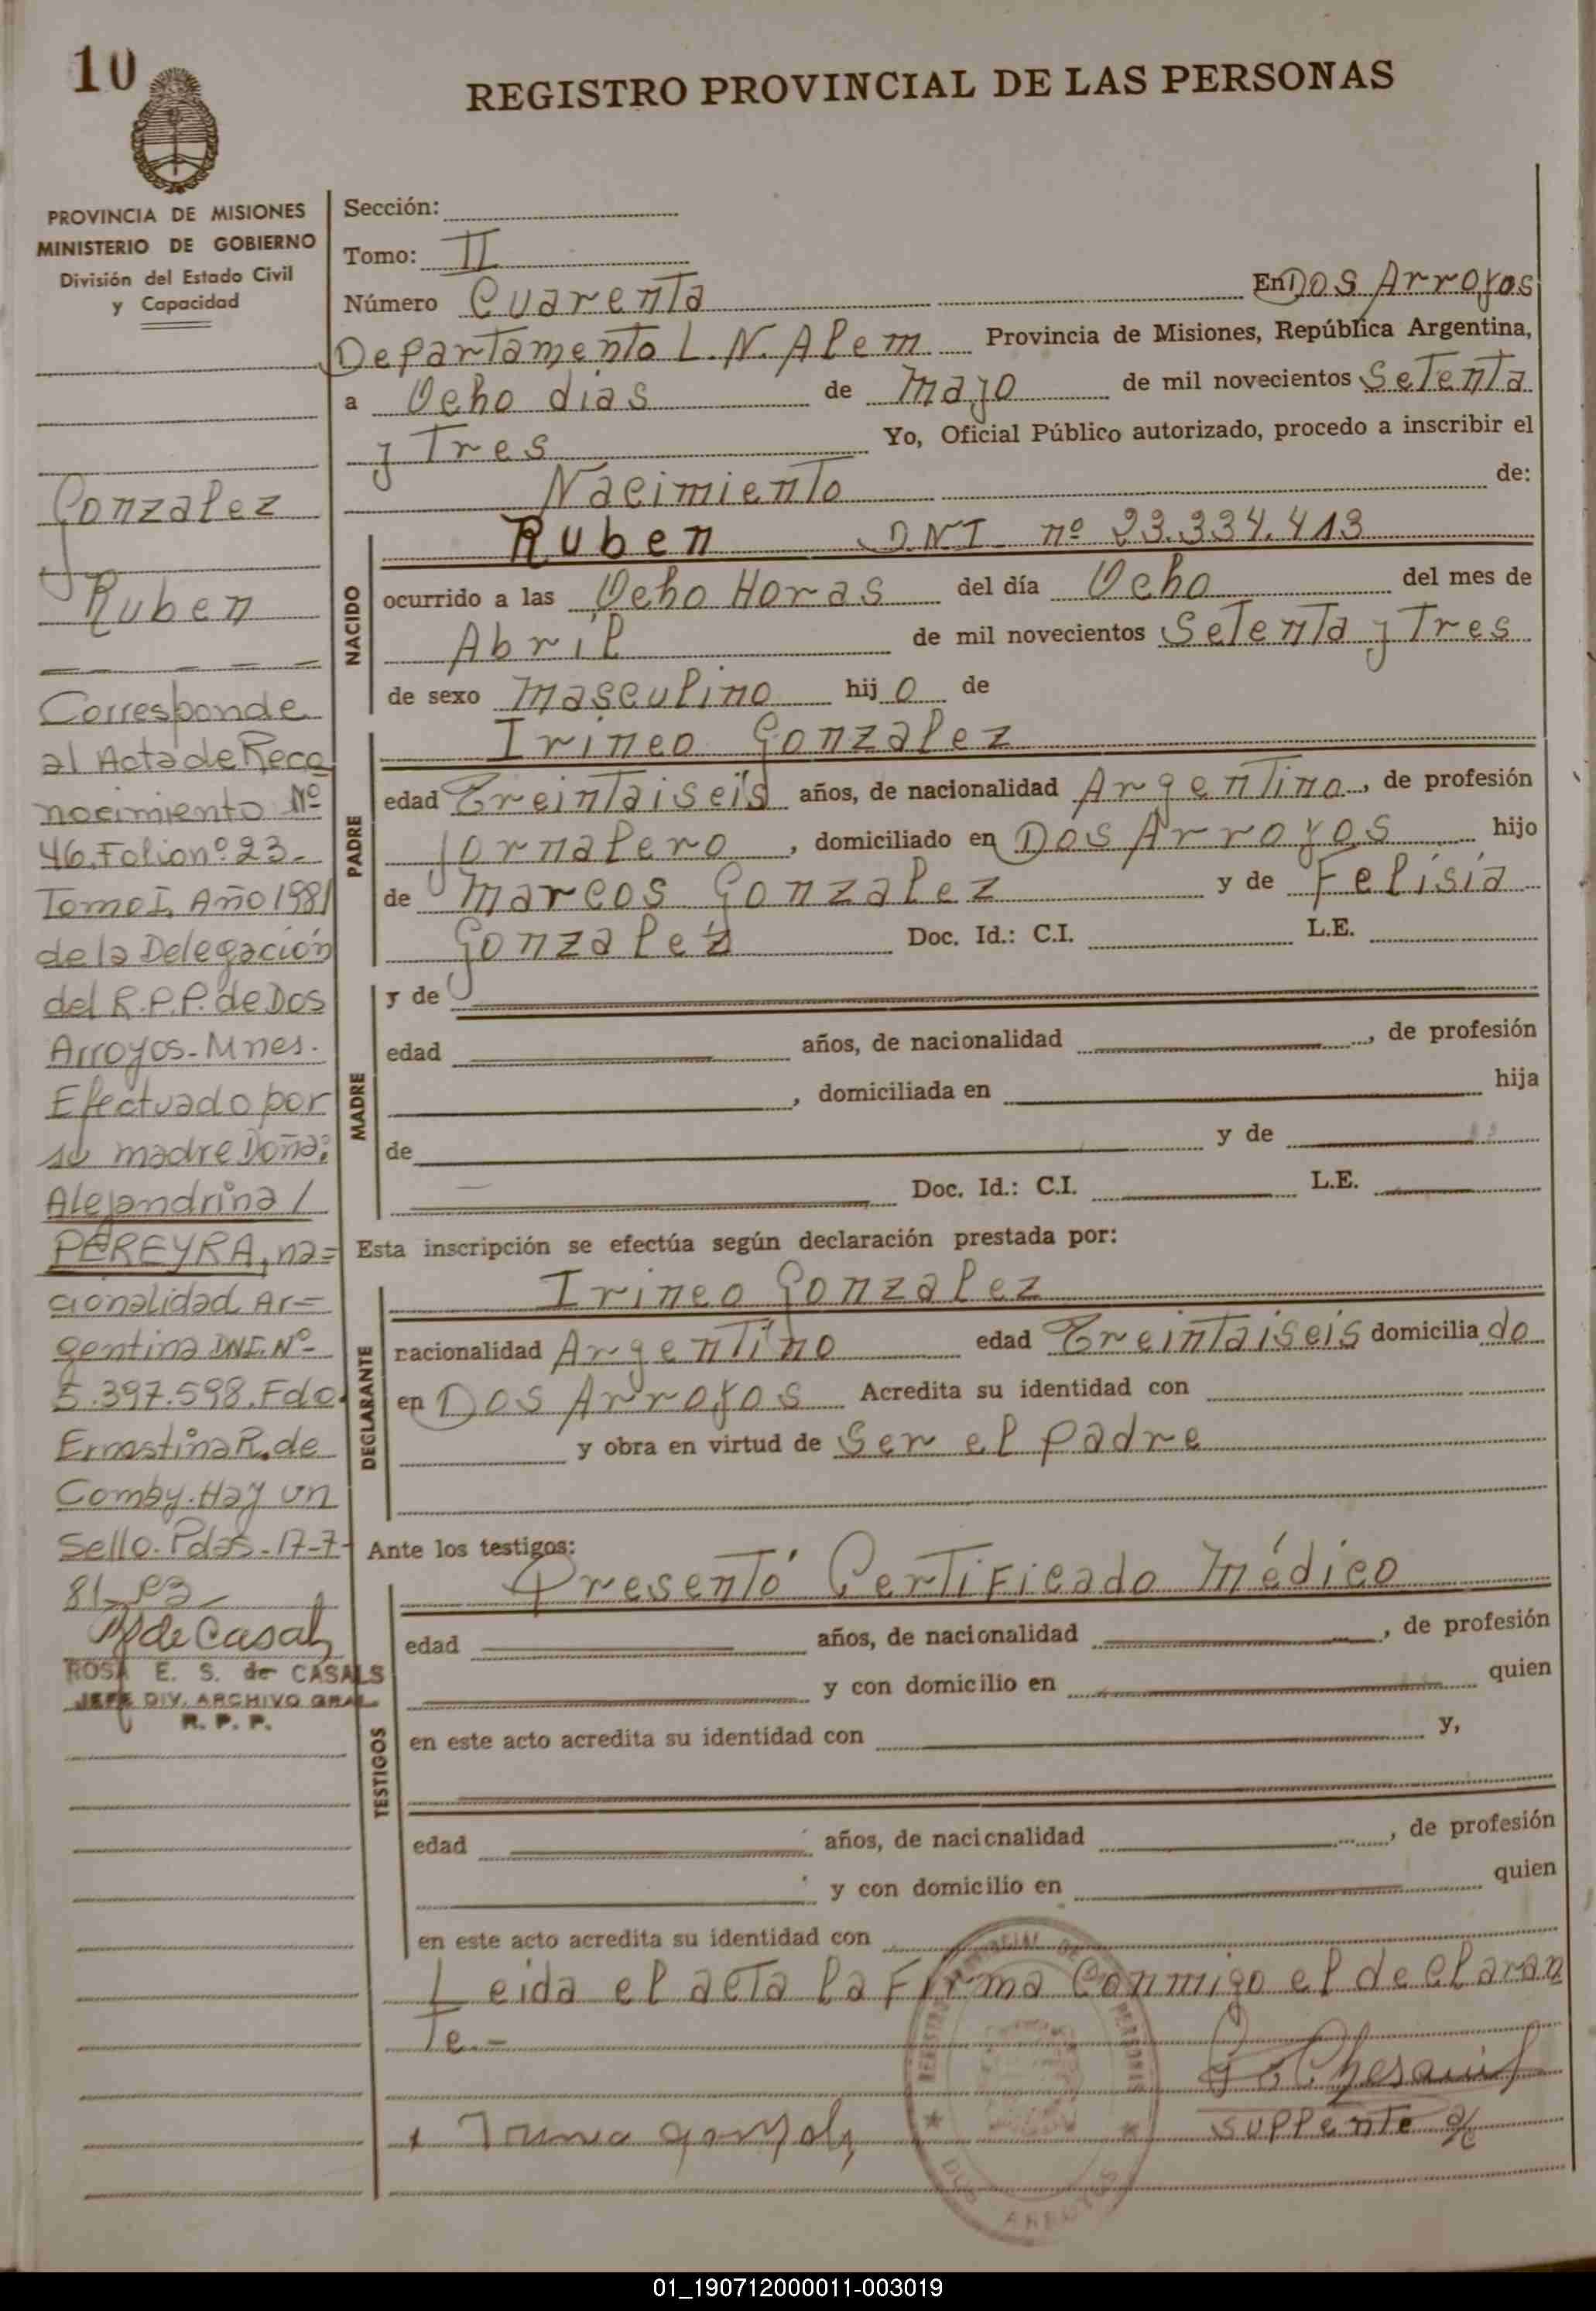 10
REGISTRO PROVINCIAL DE LAS PERSONAS
PROVINCIA DE MISIONES
MINISTERIO DE GOBIERNO
División del Estado Civil
y Capacidad
Gonzalez
Ruben
Corresponde
al Acta de Reco
nocimiento Nº
46. Folio nº 23.-
Tomo I, Año 1981
de la Delegación
del R.P.P. de Dos
Arroyos - Mnes.
Efectuado por
su madre Doña:
Alejandrina /
PEREYRA, na=
cionalidad Ar=
gentina DNI. Nº
5.397.598. Fdo.
Ernestina R. de
Comby. Hay un
Sello. Pdas - 17-7-
81
de Casals
ROSA E. S. de CASALS
JEFE DIV. ARCHIVO GRAL
R. P. P.
Sección:
Tomo: II
Número Cuarenta En Dos Arroyos
Departamento L. N. Alem Provincia de Misiones, República Argentina,
a Ocho dias de Mayo de mil novecientos Setenta
y Tres Yo, Oficial Público autorizado, procedo a inscribir el
Nacimiento de:
NACIDO
Ruben DNI nº 23.334.413
ocurrido a las Ocho Horas del día Ocho del mes de
Abril de mil novecientos Setenta y Tres
de sexo Masculino hijo de
PADRE
Irineo Gonzalez
edad Treintaiseis años, de nacionalidad Argentino, de profesión
Jornalero, domiciliado en Dos Arroyos hijo
de Marcos Gonzalez y de Felisia
Gonzalez Doc. Id.: C.I. L.E.
MADRE
y de
edad años, de nacionalidad , de profesión
, domiciliada en hija
de y de
Doc. Id.: C.I. L.E.
Esta inscripción se efectúa según declaración prestada por:
DECLARANTE
Irineo Gonzalez
nacionalidad Argentino edad Treintaiseis domiciliado
en Dos Arroyos Acredita su identidad con
y obra en virtud de Ser el padre
Ante los testigos:
Presentó Certificado Médico
TESTIGOS
edad años, de nacionalidad , de profesión
y con domicilio en quien
en este acto acredita su identidad con y,
edad años, de nacicnalidad , de profesión
y con domicilio en quien
en este acto acredita su identidad con
Leida el acta la Firma Conmigo el declaran
te.-
Suplente
DOS ARROYOS
01_190712000011-003019